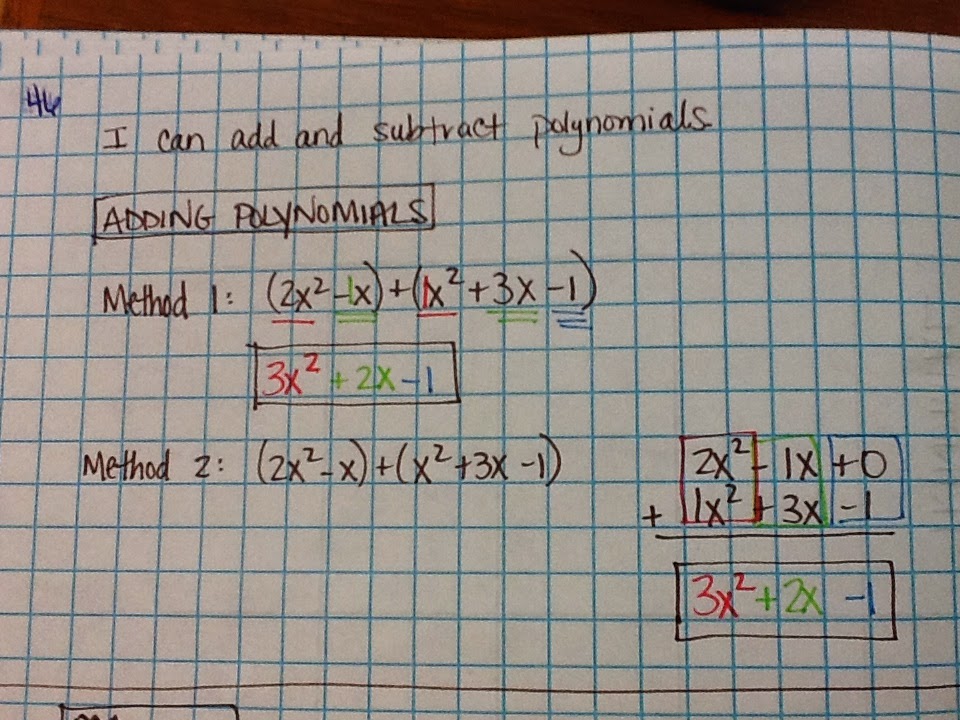 46
I can add and subtract polynomials
ADDING POLYNOMIALS
Method 1: (2x² - 1x) + (1x² + 3x - 1)
3x² + 2x - 1
Method 2: (2x² - x) + (x² + 3x - 1)
2x² - 1x + 0
+ 1x² + 3x - 1
3x² + 2x - 1